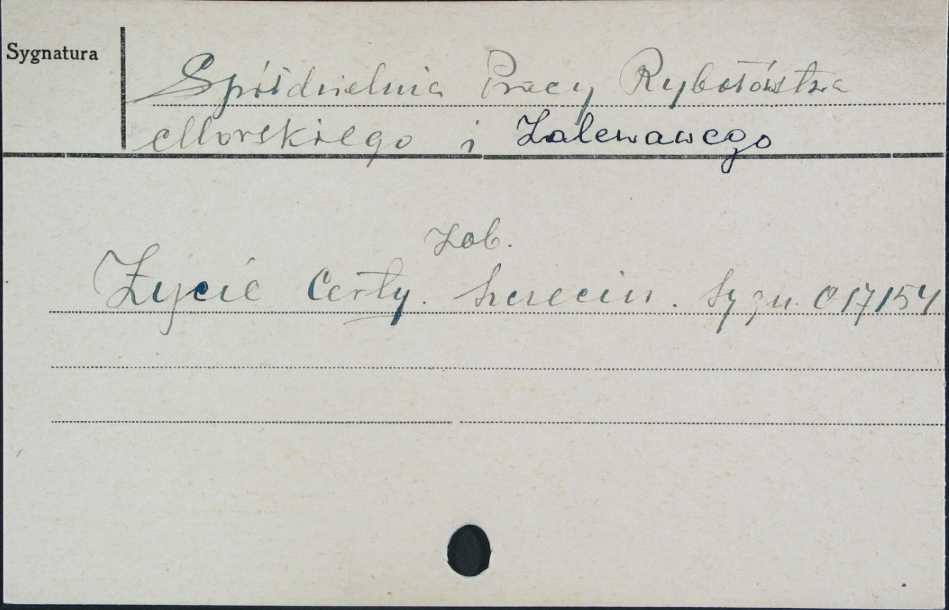 Sygnatura
Spółdzielnia Pracy Rybołówstwa
Morskiego i Zalewowego
Zob.
Życie Certy. Szczecin. Sygn. 017154